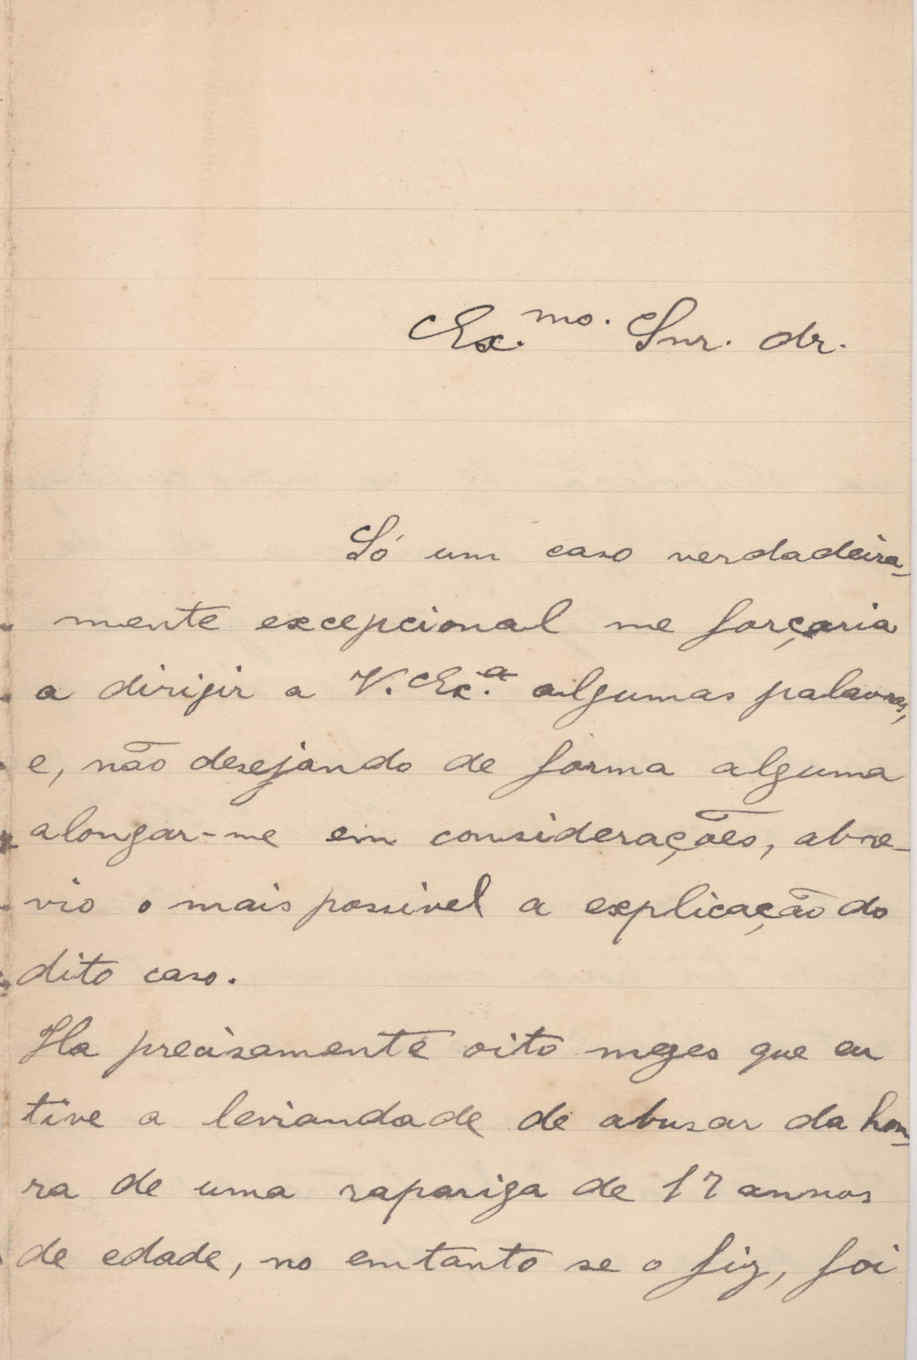 Ex.mo. Snr. dr.
Só um caso verdadeira-
mente excepcional me forçaria
a dirigir a V. Ex.a algumas palavras,
e, não desejando de forma alguma
alongar-me em considerações, abre-
vio o mais possivel a explicação do
dito caso.
Ha precisamente oito mezes que eu
tive a leviandade de abusar da hon-
ra de uma rapariga de 17 annos
de edade, no emtanto se o fiz, foi